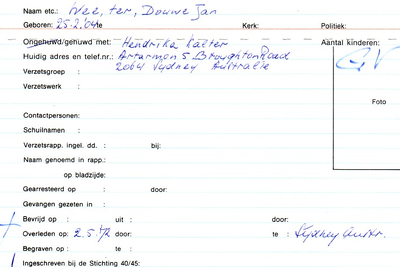 Naam etc.: Wee, ter, Douwe Jan
Geboren: 25.2.'04 te Kerk: Politiek:
Ongehuwd/gehuwd met: Hendrika Kaeter Aantal kinderen:
Huidig adres en telef.nr.: Artarmon 5 Broughton Road
Verzetsgroep : 2064 Sydney Australie
Verzetswerk :
Foto
Contactpersonen:
Schuilnamen :
Verzetsrapp. ingel. dd. : bij:
Naam genoemd in rapp.:
op bladzijde:
Gearresteerd op : door:
Gevangen gezeten in :
Bevrijd op : uit : door:
Overleden op: 2.5. door: te : Sydney Austr.
Begraven op : te :
Ingeschreven bij de Stichting 40/45: